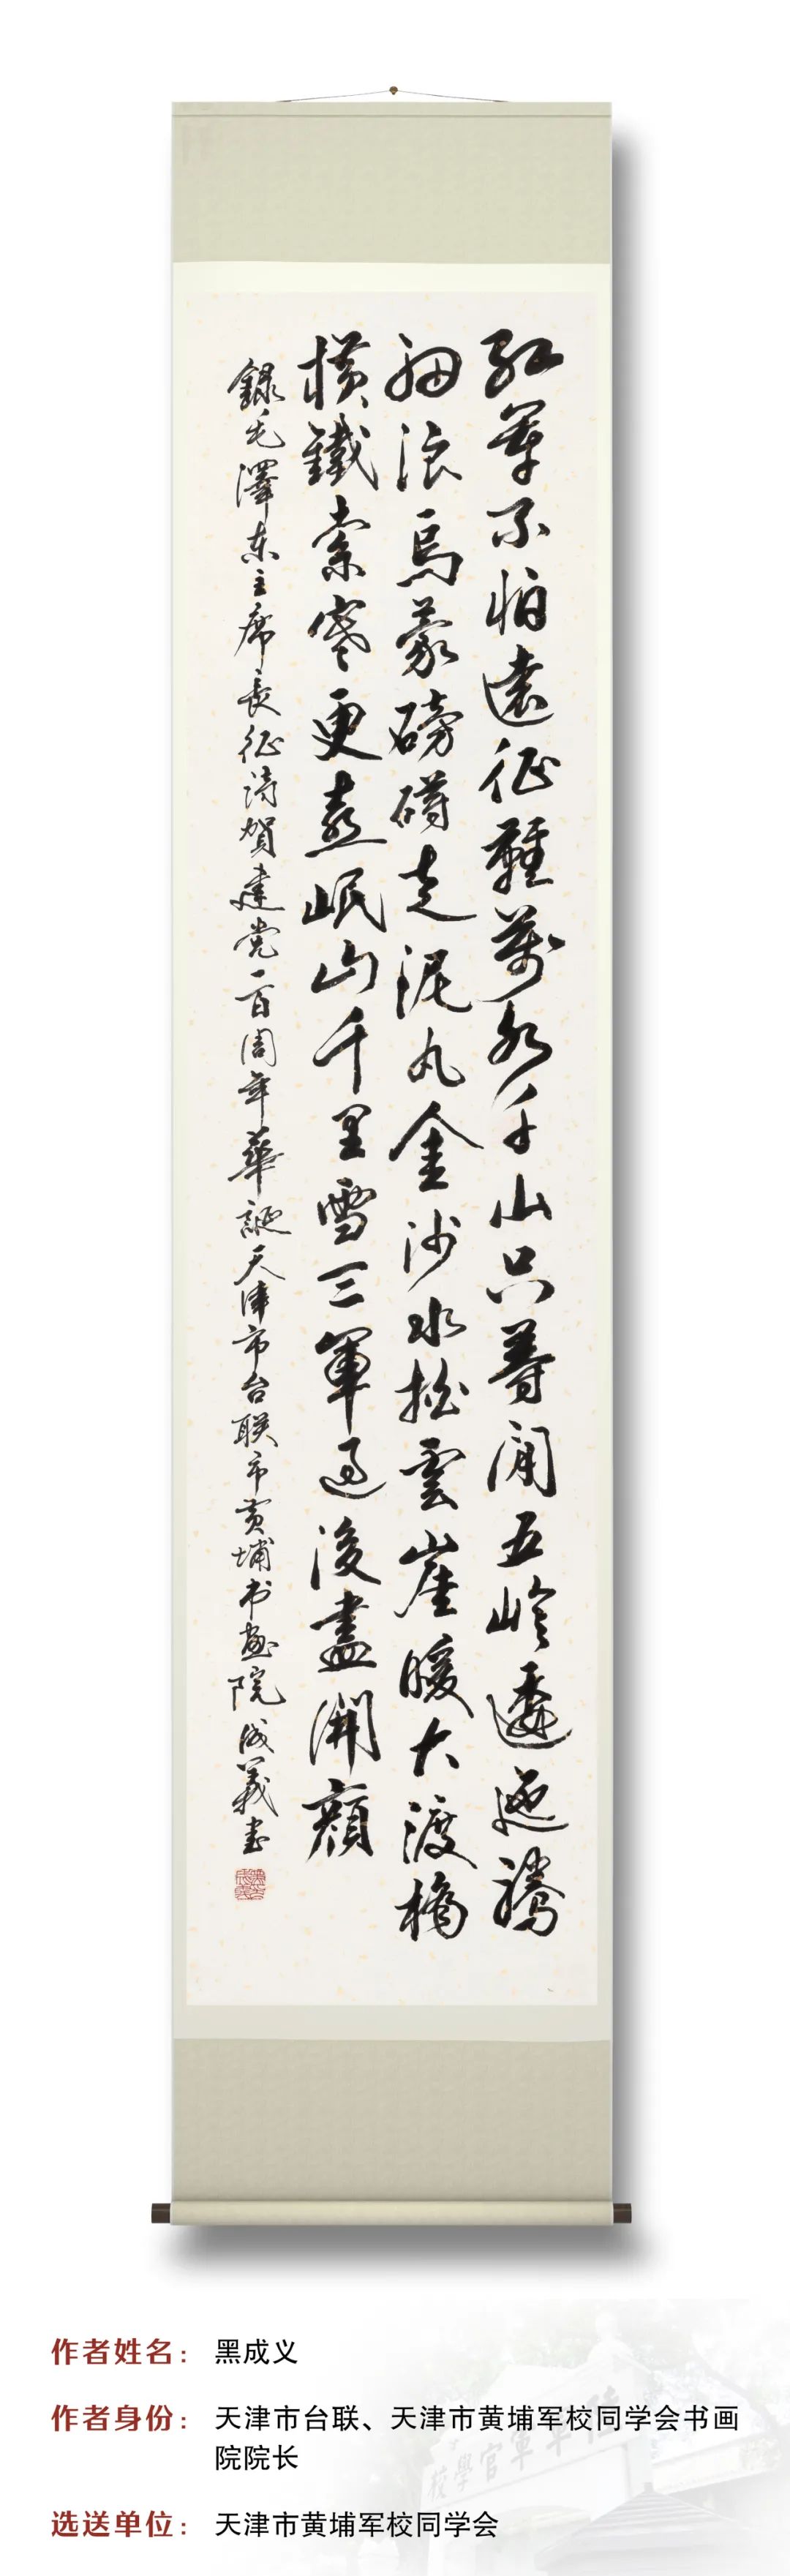 紅軍不怕遠征難萬水千山只等閒五岭逶迤騰
細浪烏蒙磅礴走泥丸金沙水拍雲崖暖大渡橋
横鐵索寒更喜岷山千里雪三軍過後盡開顏
錄毛澤东主席長征詩賀建党一百周年華誕天津市台联市黄埔书画院成義书
作者姓名：黑成义
作者身份：天津市台联、天津市黄埔军校同学会书画
院院长
选送单位：天津市黄埔军校同学会